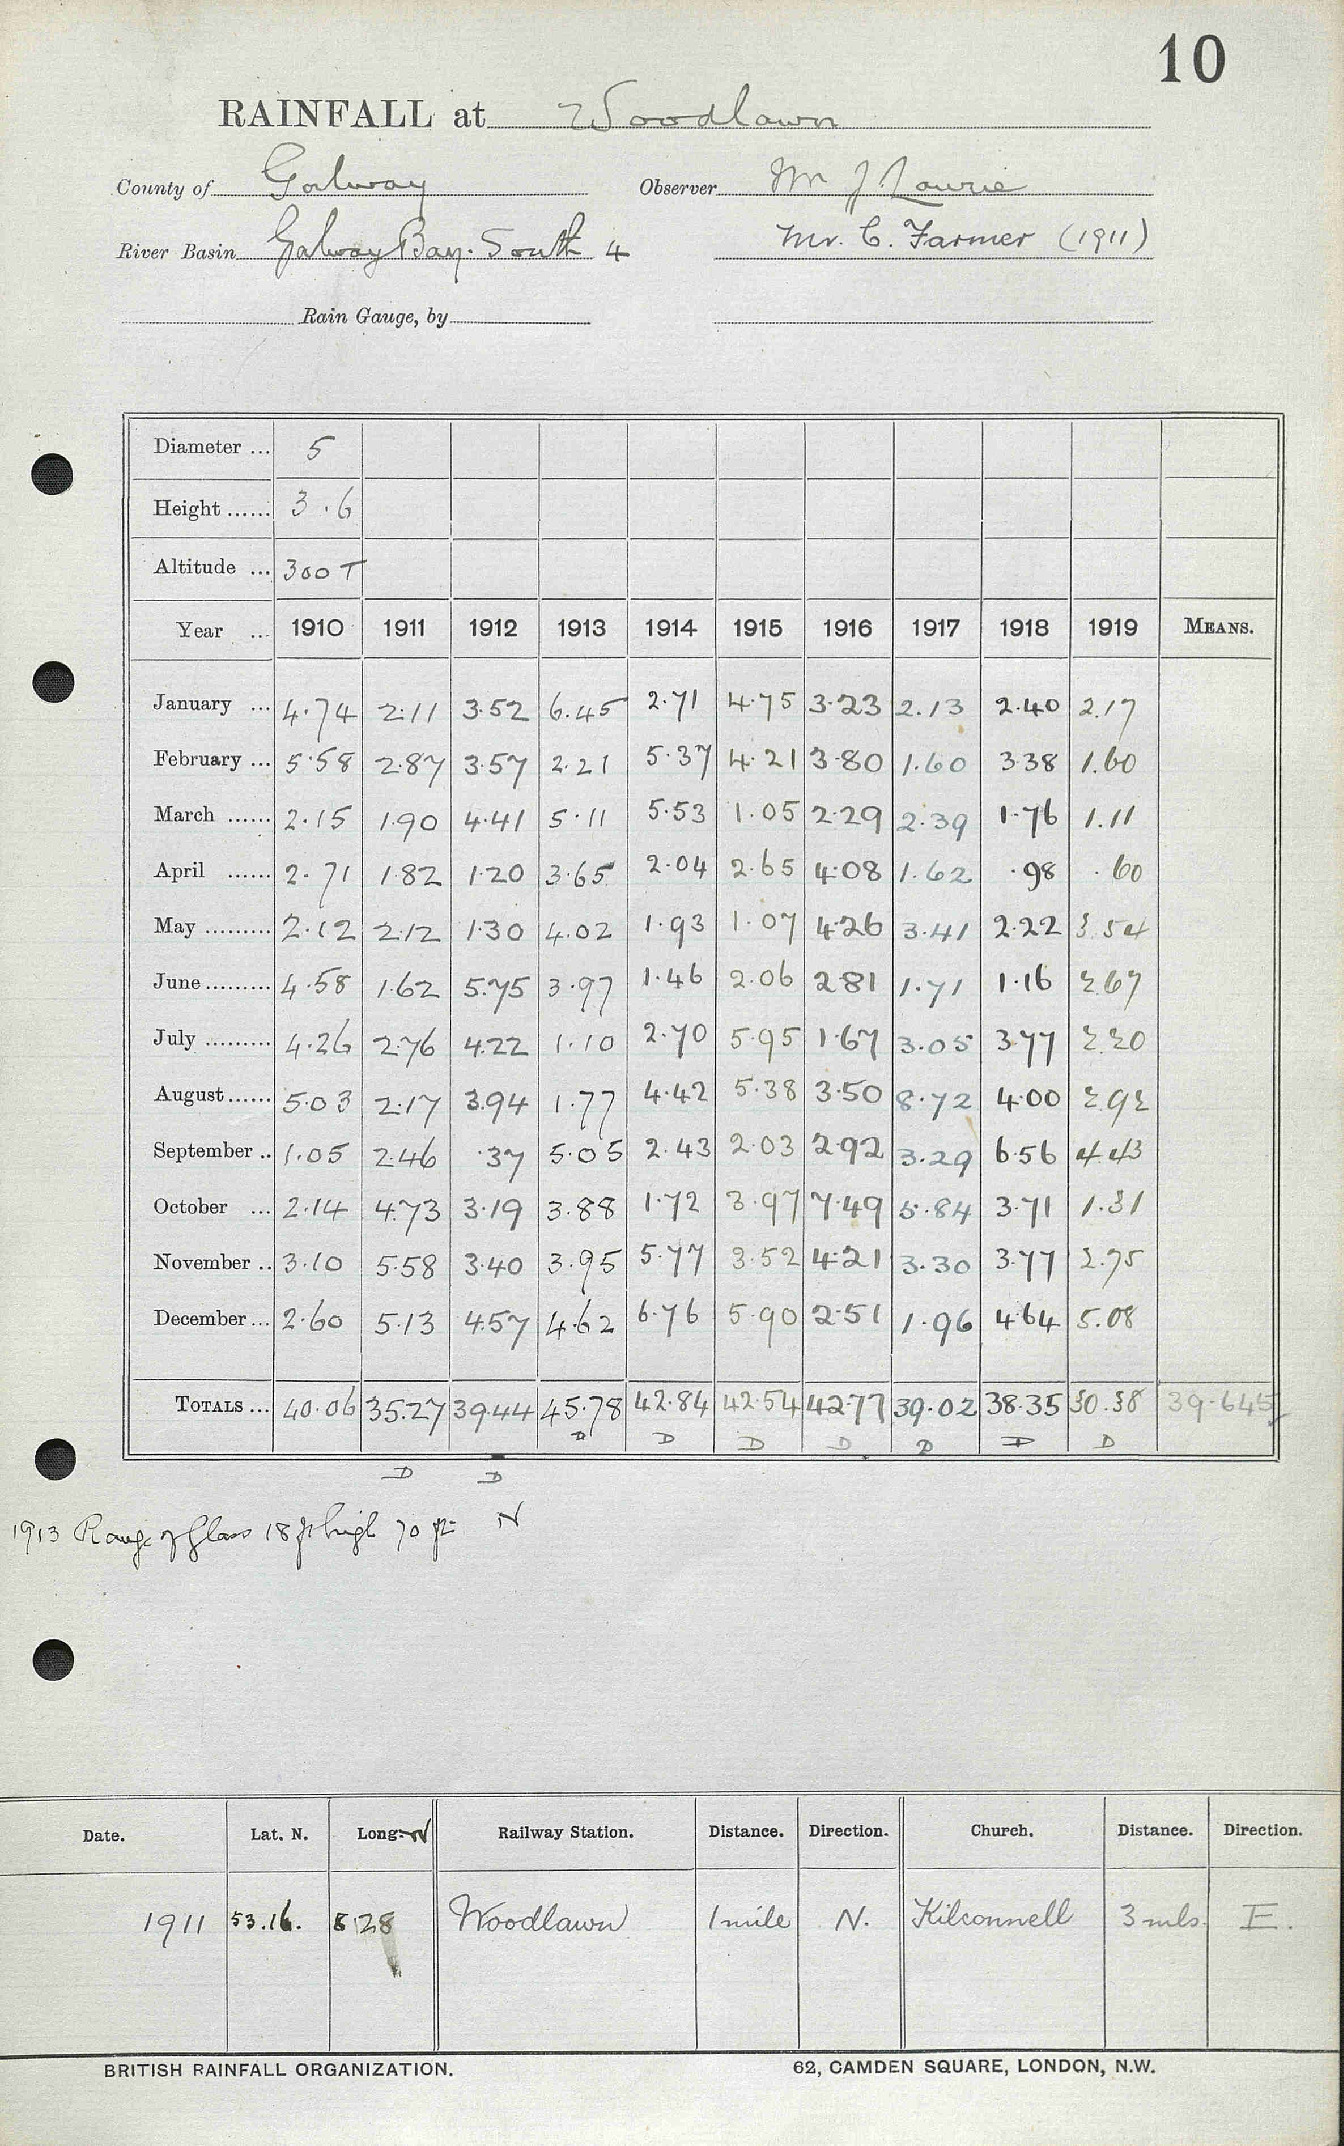 10
RAINFALL at Woodlawn
County of Galway Observer Mr J Lawrie
River Basin Galway Bay. South 4 Mr. C. Farmer (1911)
Rain Gauge, by
Diameter ... 5
Height ...... 3.6
Altitude ... 300 T
Year ... 1910 1911 1912 1913 1914 1915 1916 1917 1918 1919 MEANS.
January ... 4.74 2.11 3.52 6.45 2.71 4.75 3.23 2.13 2.40 2.17
February ... 5.58 2.87 3.57 2.21 5.37 4.21 3.80 1.60 3.38 1.60
March ...... 2.15 1.90 4.41 5.11 5.53 1.05 2.29 2.39 1.76 1.11
April ...... 2.71 1.82 1.20 3.65 2.04 2.65 4.08 1.62 .98 .60
May ......... 2.12 2.12 1.30 4.02 1.93 1.07 4.26 3.41 2.22 3.54
June ......... 4.58 1.62 5.75 3.97 1.46 2.06 2.81 1.71 1.16 2.67
July ......... 4.26 2.76 4.22 1.10 2.70 5.95 1.67 3.05 3.77 2.20
August ...... 5.03 2.17 3.94 1.77 4.42 5.38 3.50 8.72 4.00 2.92
September .. 1.05 2.46 .37 5.05 2.43 2.03 2.92 3.29 6.56 4.43
October ... 2.14 4.73 3.19 3.88 1.72 3.97 7.49 5.84 3.71 1.31
November .. 3.10 5.58 3.40 3.95 5.77 3.52 4.21 3.30 3.77 2.75
December ... 2.60 5.13 4.57 4.62 6.76 5.90 2.51 1.96 4.64 5.08
TOTALS ... 40.06 35.27 39.44 45.78 42.84 42.54 42.77 39.02 38.35 30.38 39.645
D D D D D D D
D D
1913 Range of Glass 18 ft high 70 ft N
Date. Lat. N. Long. W Railway Station. Distance. Direction. Church. Distance. Direction.
1911 53.16. 8 28 Woodlawn 1 mile N. Kilconnell 3 mls. E.
BRITISH RAINFALL ORGANIZATION. 62, CAMDEN SQUARE, LONDON, N.W.